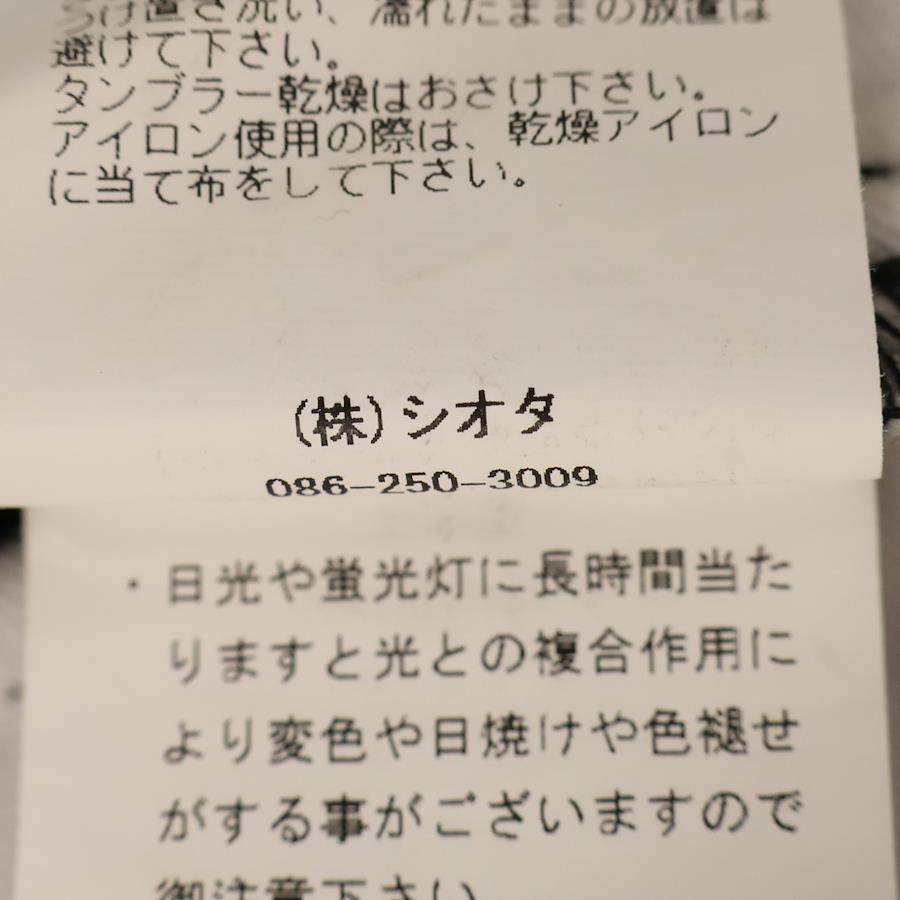 つけ置き洗い、濡れたままの放置は
避けて下さい。
タンブラー乾燥はおさけ下さい。
アイロン使用の際は、乾燥アイロン
に当て布をして下さい。
(株)シオタ
086-250-3009
・日光や蛍光灯に長時間当た
りますと光との複合作用に
より変色や日焼けや色褪せ
がする事がございますので
御注意下さい